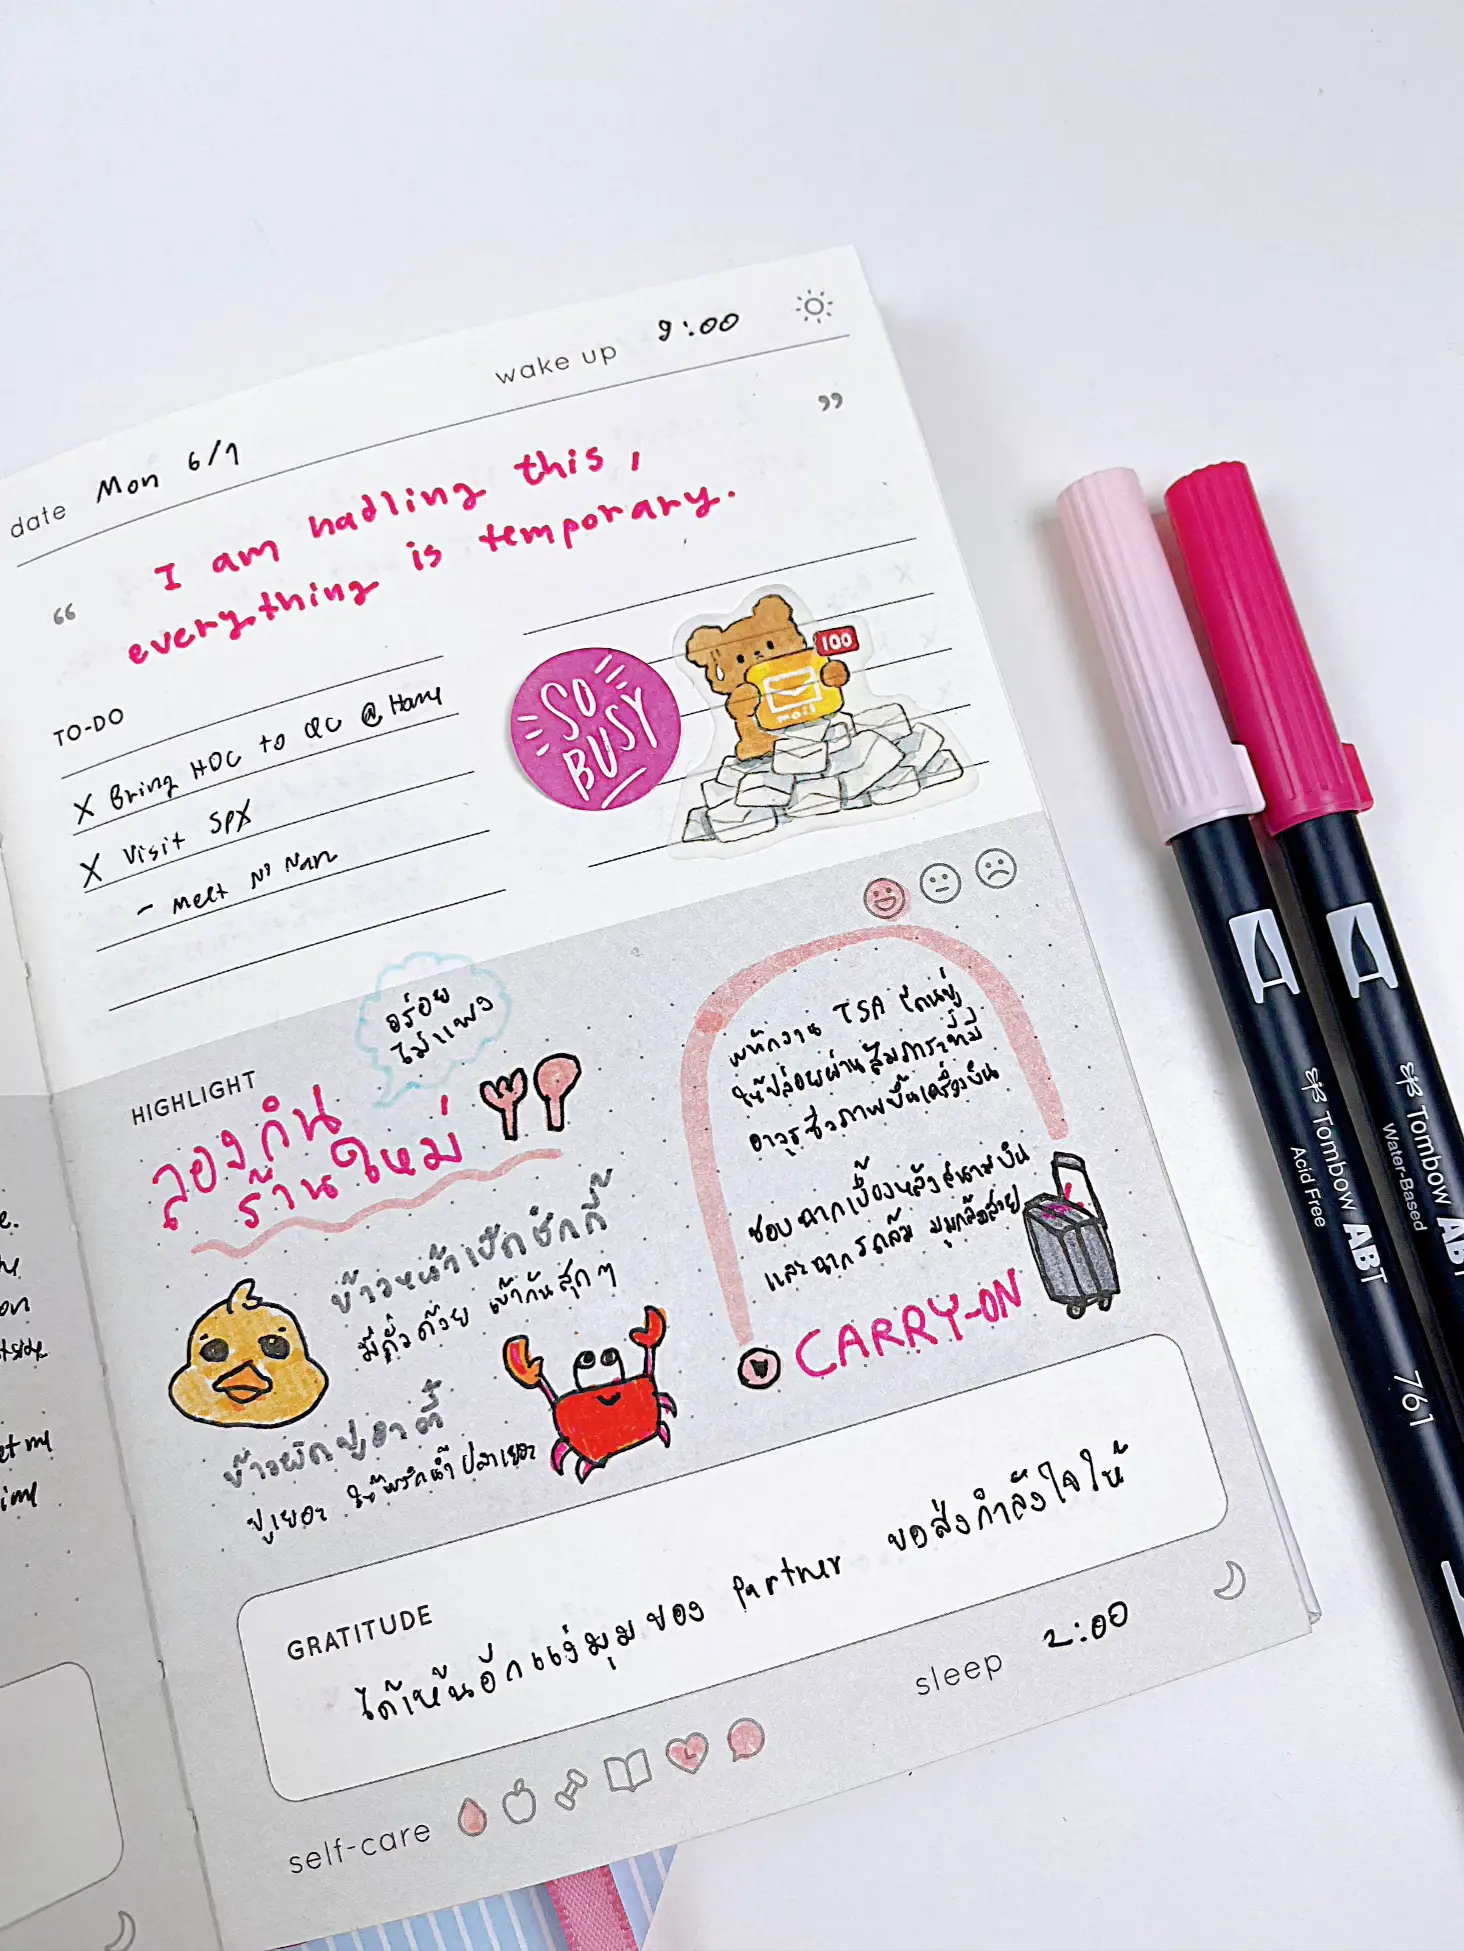 date Mon 6/1
wake up 9:00
“ I am hadling this, ”
everything is temporary.
TO-DO
X Bring HDC to QC @Home
X Visit SPX
- Meet N' Nan
SO
BUSY
100
mail
HIGHLIGHT
อร่อย
ไม่แพง
ลองกิน
ร้านใหม่
ข้าวหน้าเป็ดยักกี้
มีถั่วด้วย เข้ากันสุดๆ
ข้าวผัดปูฮาตี้
ปูเยอะ ให้พริกน้ำปลาเยอะ
พนักงาน TSA โดนขู่
ให้ปล่อยผ่านสัมภาระที่มี
อาวุธชีวภาพขึ้นเครื่องบิน
ชอบฉากเบื้องหลังสนามบิน
และฉากรถล้ม มุมกล้องสวย
CARRY-ON
GRATITUDE
ได้เห็นอีกแง่มุมของ partner ขอส่งกำลังใจให้
sleep 2:00
self-care
e.
on
et me
ime
Tombow ABT
Acid Free
761
Tombow AB
Water-Based